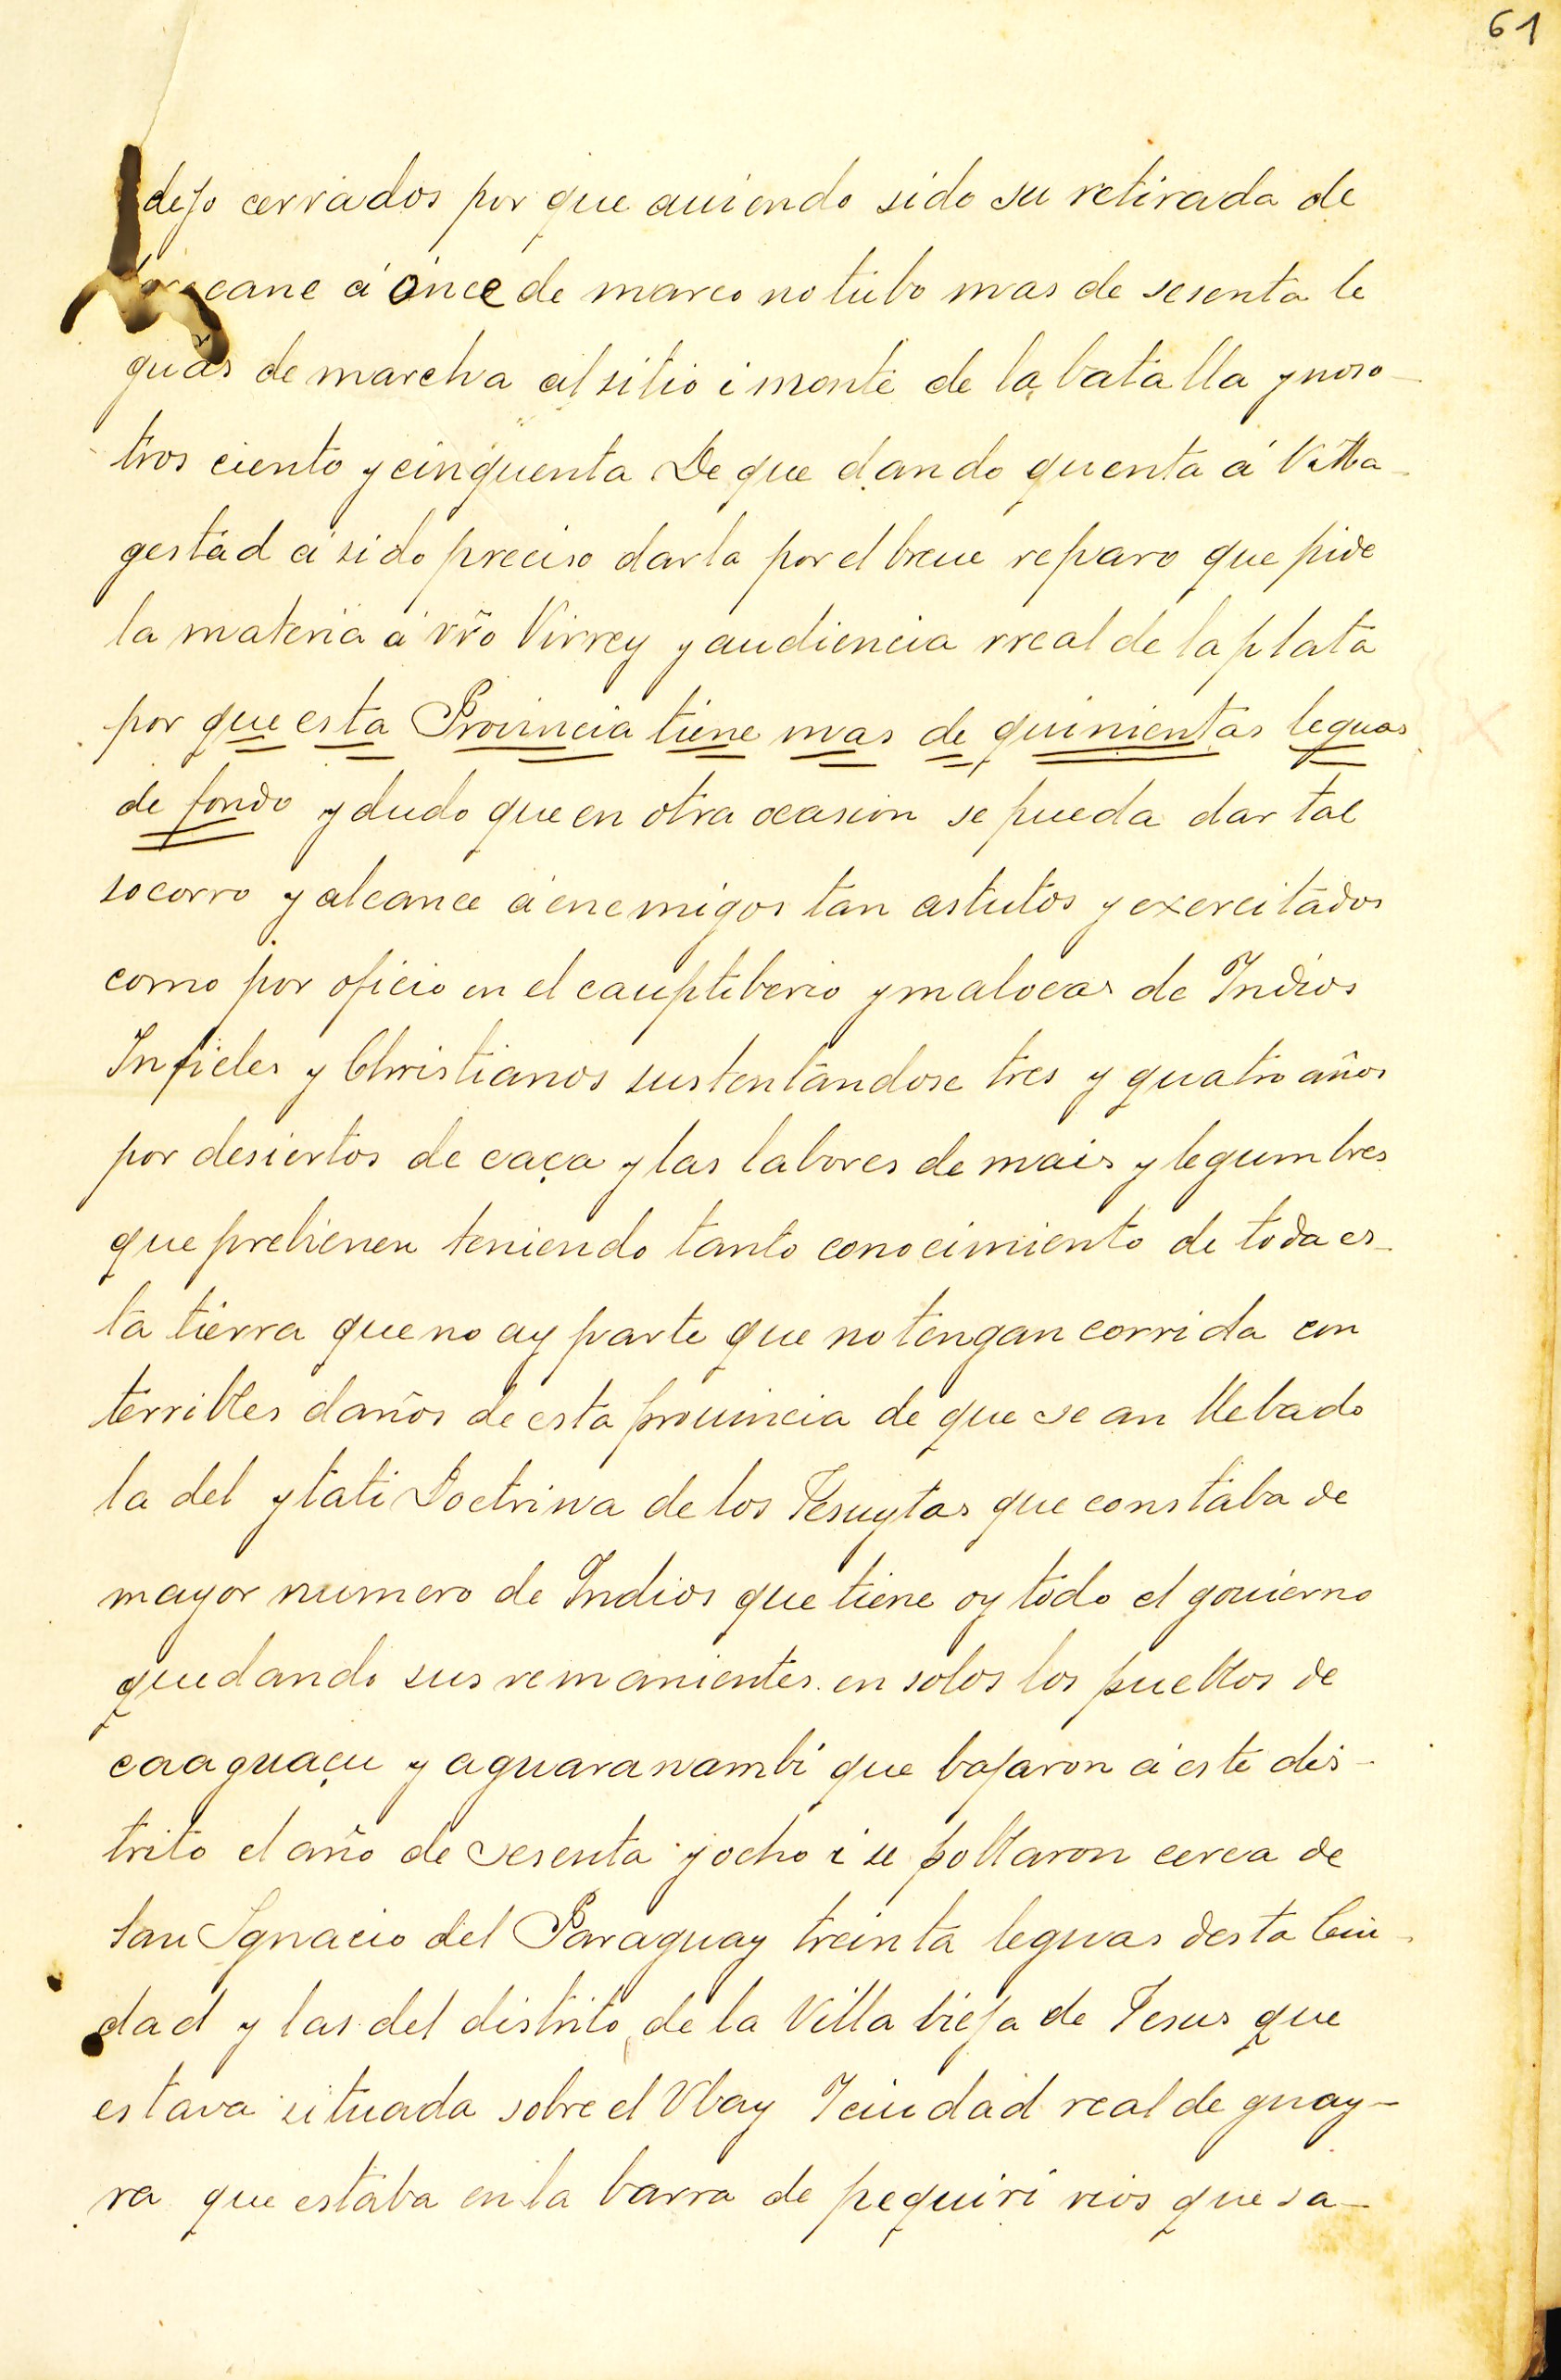 61
dejo cerrados por que auiendo sido su retirada de
cane á once de março no tubo mas de sesenta le
guas de marcha al sitio i monte de la batalla y noso-
tros ciento y cinquenta De que dando quenta á V Ma-
gestad á sido preciso darla por el breue reparo que pide
la materia á vr̃o Virrey y audiencia rreal de la plata
por que esta Prouincia tiene mas de quinientas leguas
de fondo y dudo que en otra ocasion se pueda dar tal
socorro y alcance á enemigos tan astutos y exercitados
como por oficio en el cauptiberio y malocas de Indios
Infieles y Christianos sustentandose tres y quatro años
por desiertos de caça y las labores de mais y legumbres
que prebienen teniendo tanto conocimiento de toda es-
ta tierra que no ay parte que no tengan corrida con
terribles daños de esta prouincia de que se an llebado
la del ytati Doctrina de los Jesuytas que constaba de
mayor numero de Indios que tiene oy todo el gouierno
quedando sus remanientes en solos los pueblos de
caaguaçu y aguaranambi que bajaron á este dis-
trito el año de sesenta y ocho i se poblaron cerca de
san Ignacio del Paraguay treinta leguas desta Ciu-
dad y las del distrito de la Villa bieja de Jesus que
estava situada sobre el Vbay I ciudad real de guay-
ra que estaba en la barra de pequiri rios que sa-